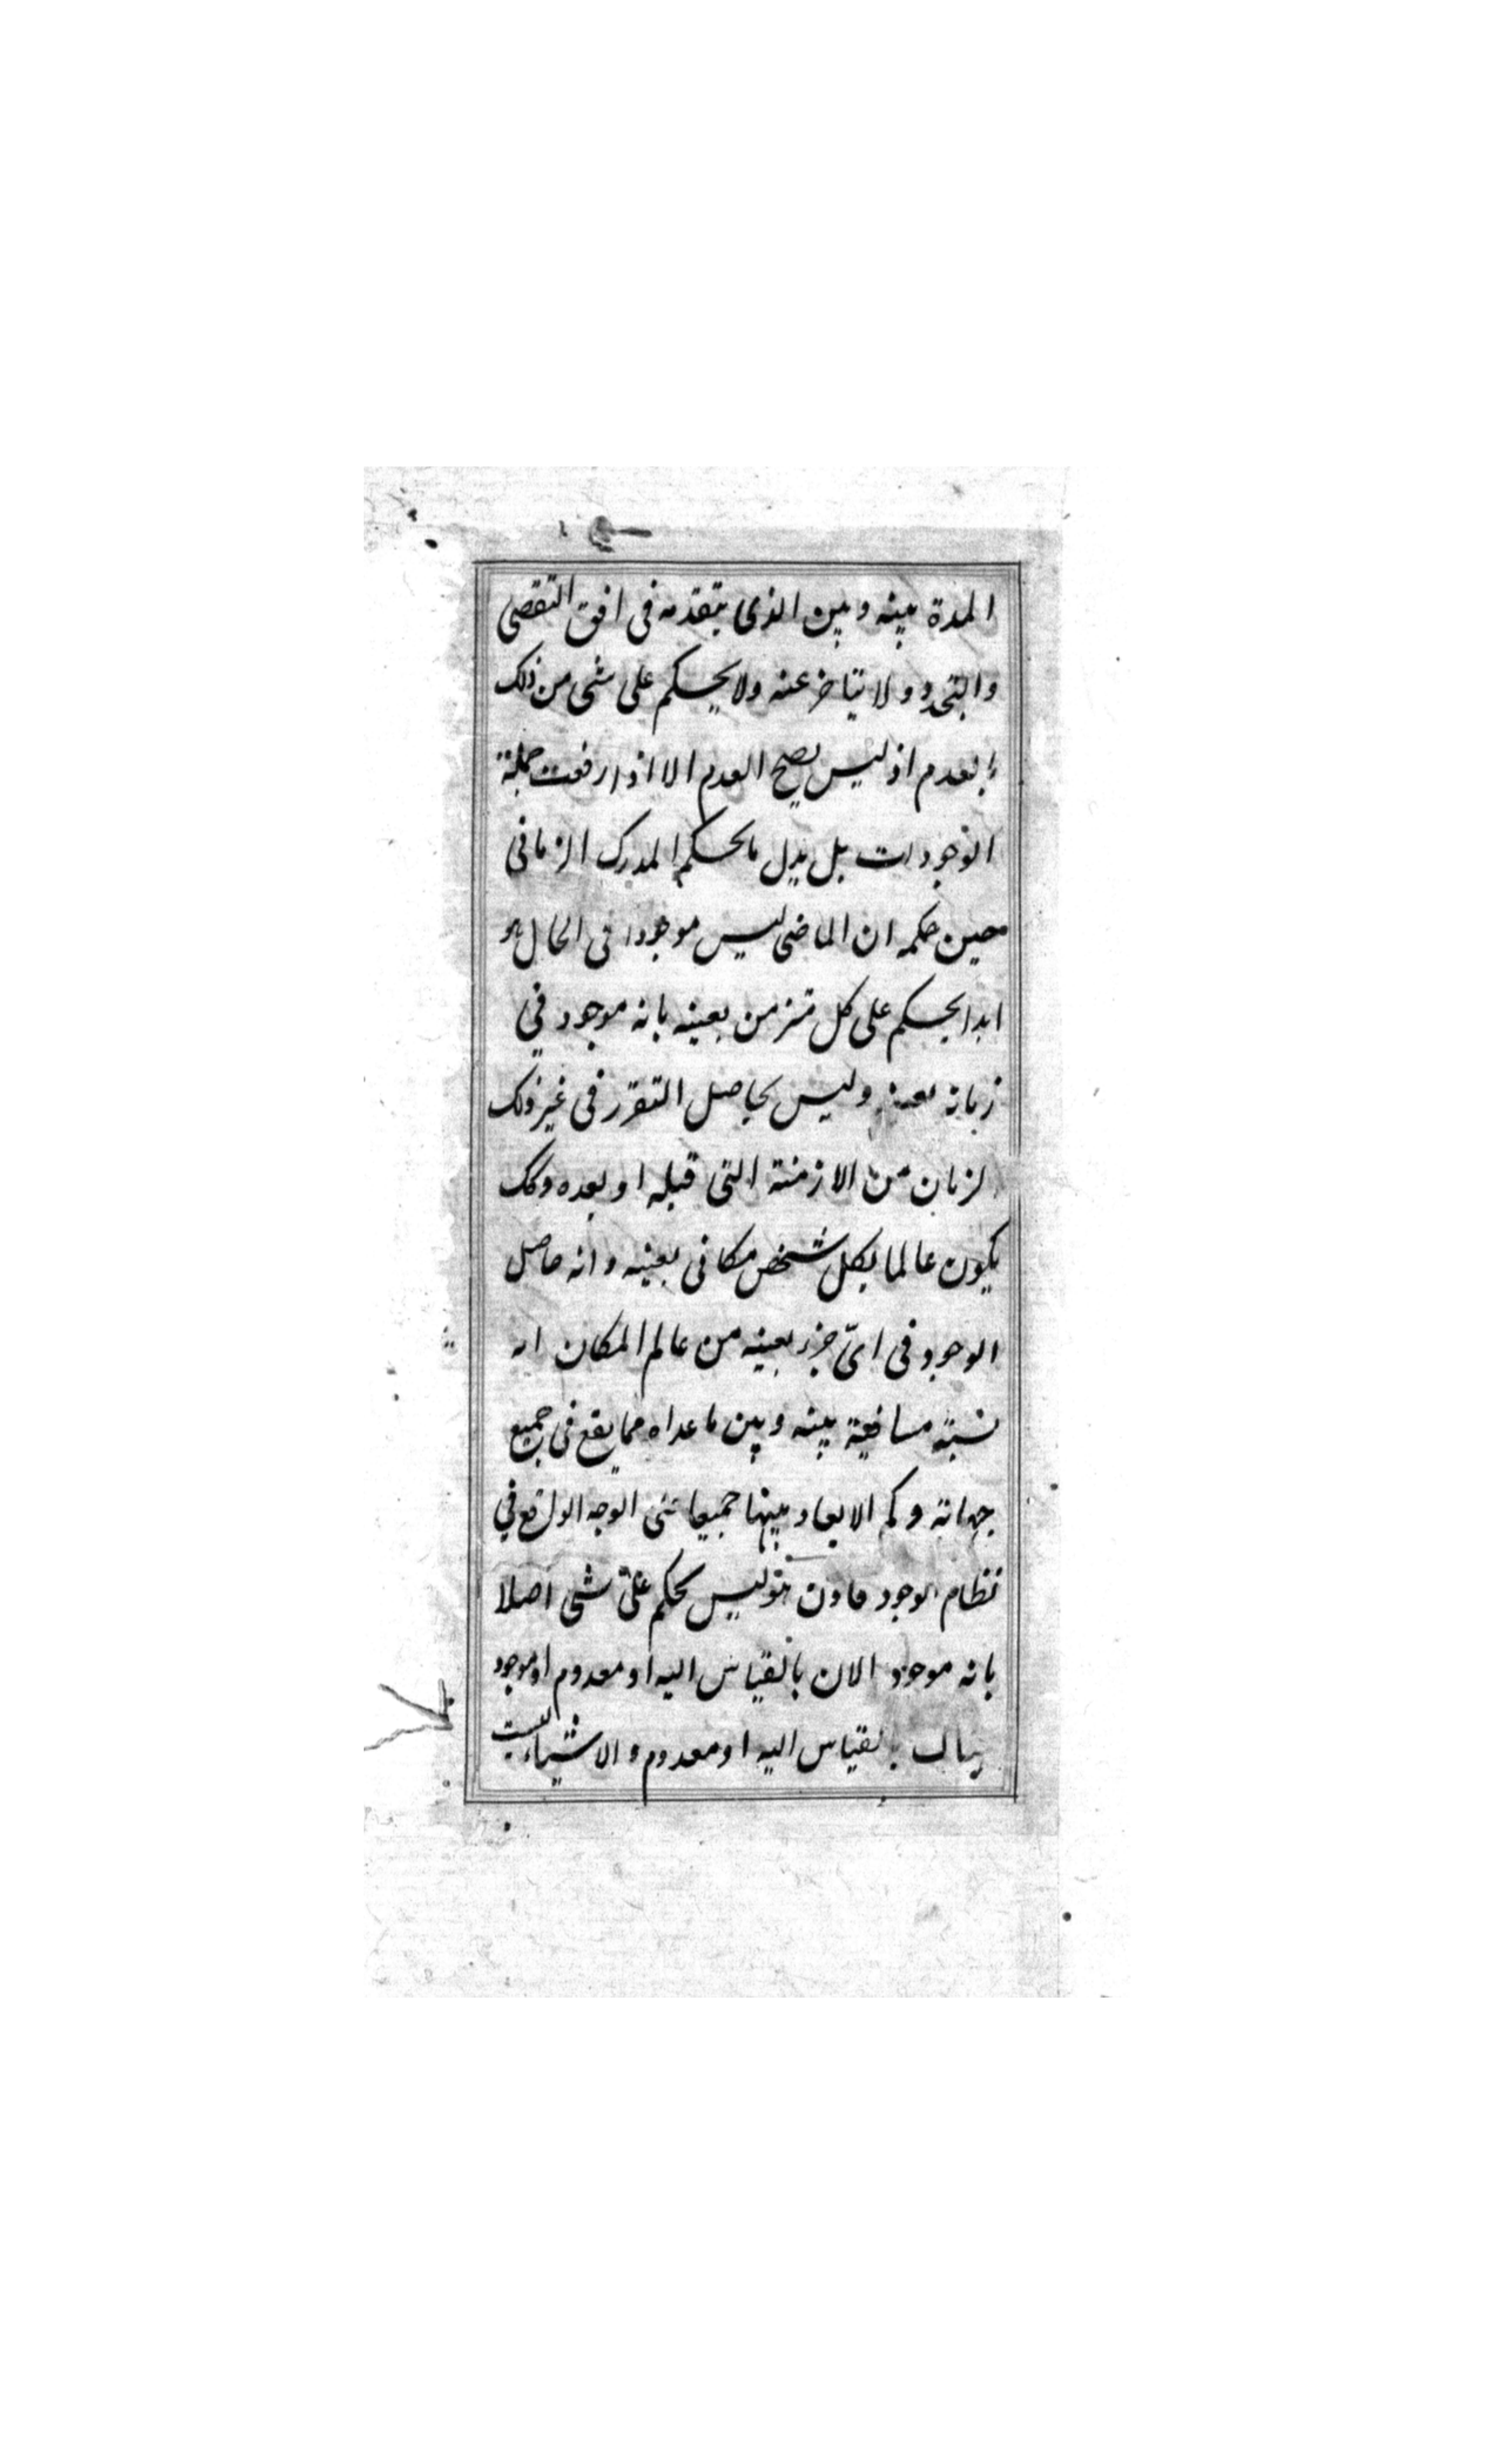 المدة بينه وبين الذى يتقدمه فى افق التقضى
والتجدد ولا يتاخر عنه ولا يحكم على شى من ذلك
بالعدم اذ ليس يصح العدم الا اذا رفعت جملة
الوجودات بل بدل ما يحكم المدرك الزمانى
حين حكمه ان الماضى ليس موجودا فى الحال هو
ابدا يحكم على كل متزمن بعينه بانه موجود فى
زمانه بعينه وليس بحاصل التقرر فى غير ذلك
الزمان من الازمنة التى قبله او بعده وكك
يكون عالما بكل شخص مكانى بعينه وانه حاصل
الوجود فى اىّ جزء بعينه من عالم المكان
نسبة مسافية بينه وبين ما عداه مما يقع فى جميع
جهاته وكم الابعاد بينها جميعا على الوجه الواقع فى
نظام الوجود فاذن هو ليس يحكم على شى اصلا
بانه موجود الان بالقياس اليه او معدوم او موجود
هناك بالقياس اليه او معدوم والاشياء ليست